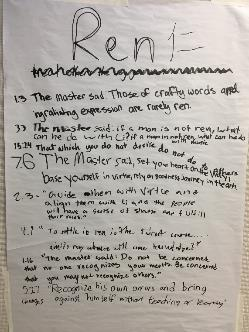 Ren 仁
1.3 The Master said, Those of crafty words and
ingratiating expression are rarely ren.
3.3 The Master said: if a man is not ren, what
can he do with Li? if a man is not ren, what can he do
with music
15.24 That which you do not desire do not do to others
7.6 The Master said, set your heart on the Way,
base yourself in virtue, rely on goodness, journey in the arts
2.3 - "Guide them with Virtue and
align them with Li and the people
will have a sense of shame and fulfill
their roles."
"The Master said: Do not be concerned
that no one recognizes your merits. Be concerned
that you may not recognize others."
Recognize his own errors and bring
charges against himself without